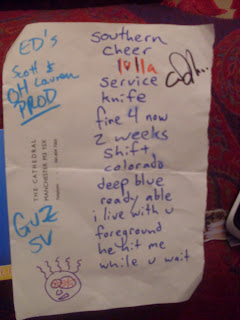 ED's
Scott &
OH Lauren
PROD
THE CATHEDRAL
MANCHESTER M3 1SX
GUZ
SV
southern
cheer
lolla
service
knife
fine 4 now
2 weeks
shift
colorado
deep blue
ready able
i live with u
foreground
he hit me
while u wait